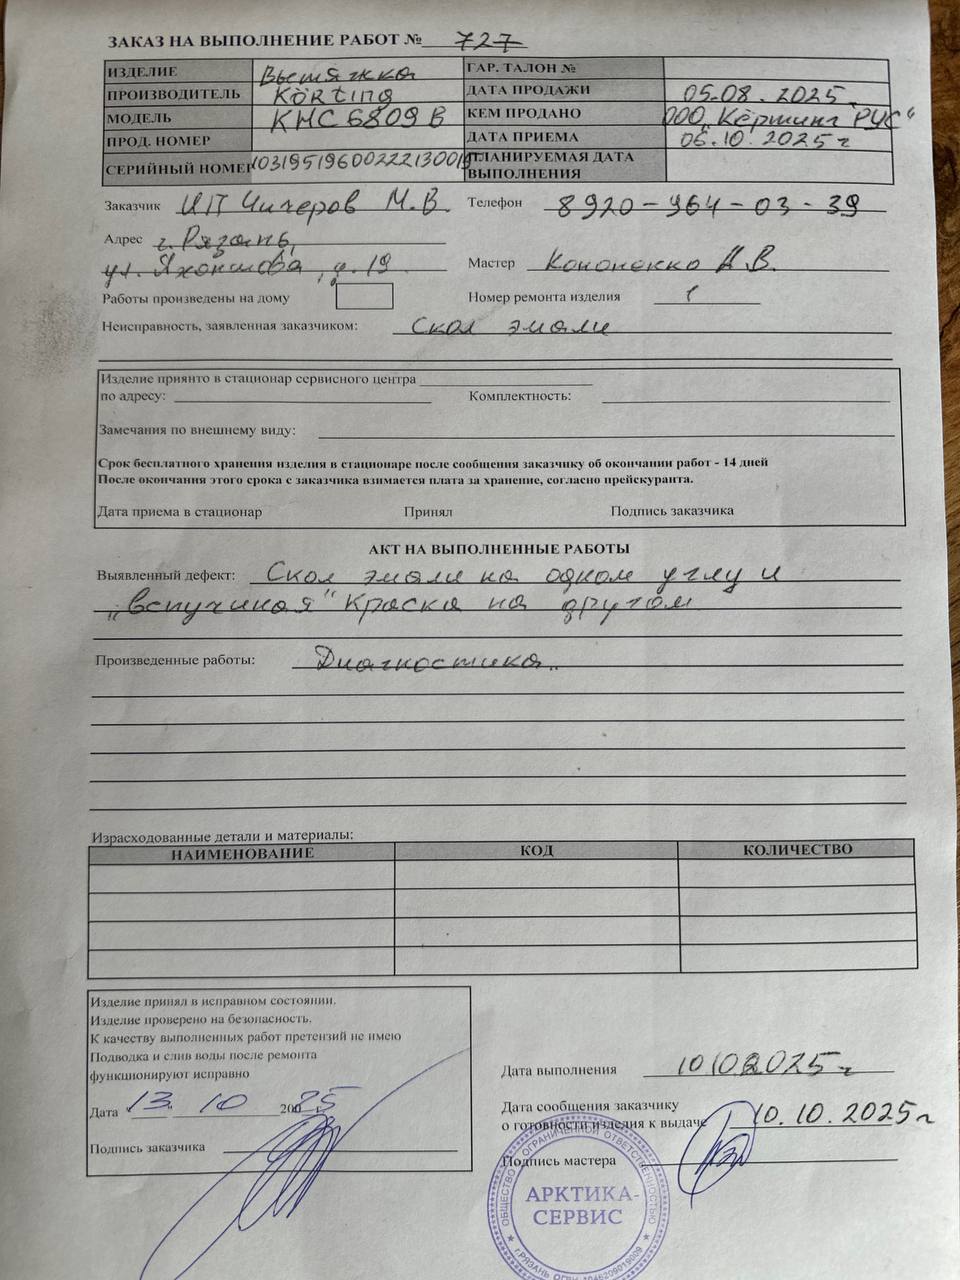 ЗАКАЗ НА ВЫПОЛНЕНИЕ РАБОТ № 727
ИЗДЕЛИЕ Вытяжка ГАР. ТАЛОН №
ПРОИЗВОДИТЕЛЬ Körting ДАТА ПРОДАЖИ 05.08.2025
МОДЕЛЬ KHC 6809 B КЕМ ПРОДАНО ООО „Кёртинг РУС“
ПРОД. НОМЕР ДАТА ПРИЕМА 06.10.2025г
СЕРИЙНЫЙ НОМЕР ПЛАНИРУЕМАЯ ДАТА ВЫПОЛНЕНИЯ
Заказчик ИП Чичеров М.В. Телефон 8920-964-03-39
Адрес г. Рязань,
ул. д. 19. Мастер
Работы произведены на дому Номер ремонта изделия 1
Неисправность, заявленная заказчиком: Скол эмали
Изделие приянто в стационар сервисного центра
по адресу: Комплектность:
Замечания по внешнему виду:
Срок бесплатного хранения изделия в стационаре после сообщения заказчику об окончании работ - 14 дней
После окончания этого срока с заказчика взимается плата за хранение, согласно прейскуранта.
Дата приема в стационар Принял Подпись заказчика
АКТ НА ВЫПОЛНЕННЫЕ РАБОТЫ
Выявленный дефект: Скол эмали на одном углу и
„вспучиная“ краска на другом
Произведенные работы: Диагностика.
Израсходованные детали и материалы:
НАИМЕНОВАНИЕ КОД КОЛИЧЕСТВО
Изделие принял в исправном состоянии.
Изделие проверено на безопасность.
К качеству выполненных работ претензий не имею
Подводка и слив воды после ремонта
функционируют исправно
Дата "13" 10 200 25
Подпись заказчика
Дата выполнения 10.10.2025г
Дата сообщения заказчику
о готовности изделия к выдаче 10.10.2025г
Подпись мастера
ОБЩЕСТВО С ОГРАНИЧЕННОЙ ОТВЕТСТВЕННОСТЬЮ
АРКТИКА-
СЕРВИС
г.РЯЗАНЬ ОГРН 1046209019009